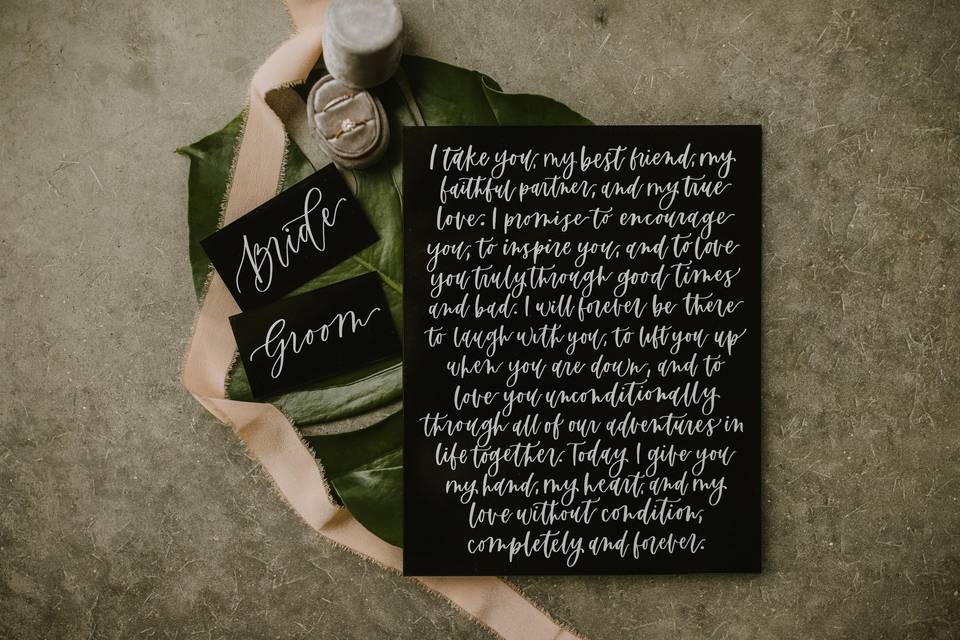 Bride
Groom
I take you, my best friend, my
faithful partner, and my true
love. I promise to encourage
you, to inspire you, and to love
you truly through good times
and bad. I will forever be there
to laugh with you, to lift you up
when you are down, and to
love you unconditionally
through all of our adventures in
life together. Today I give you
my hand, my heart, and my
love without condition,
completely and forever.